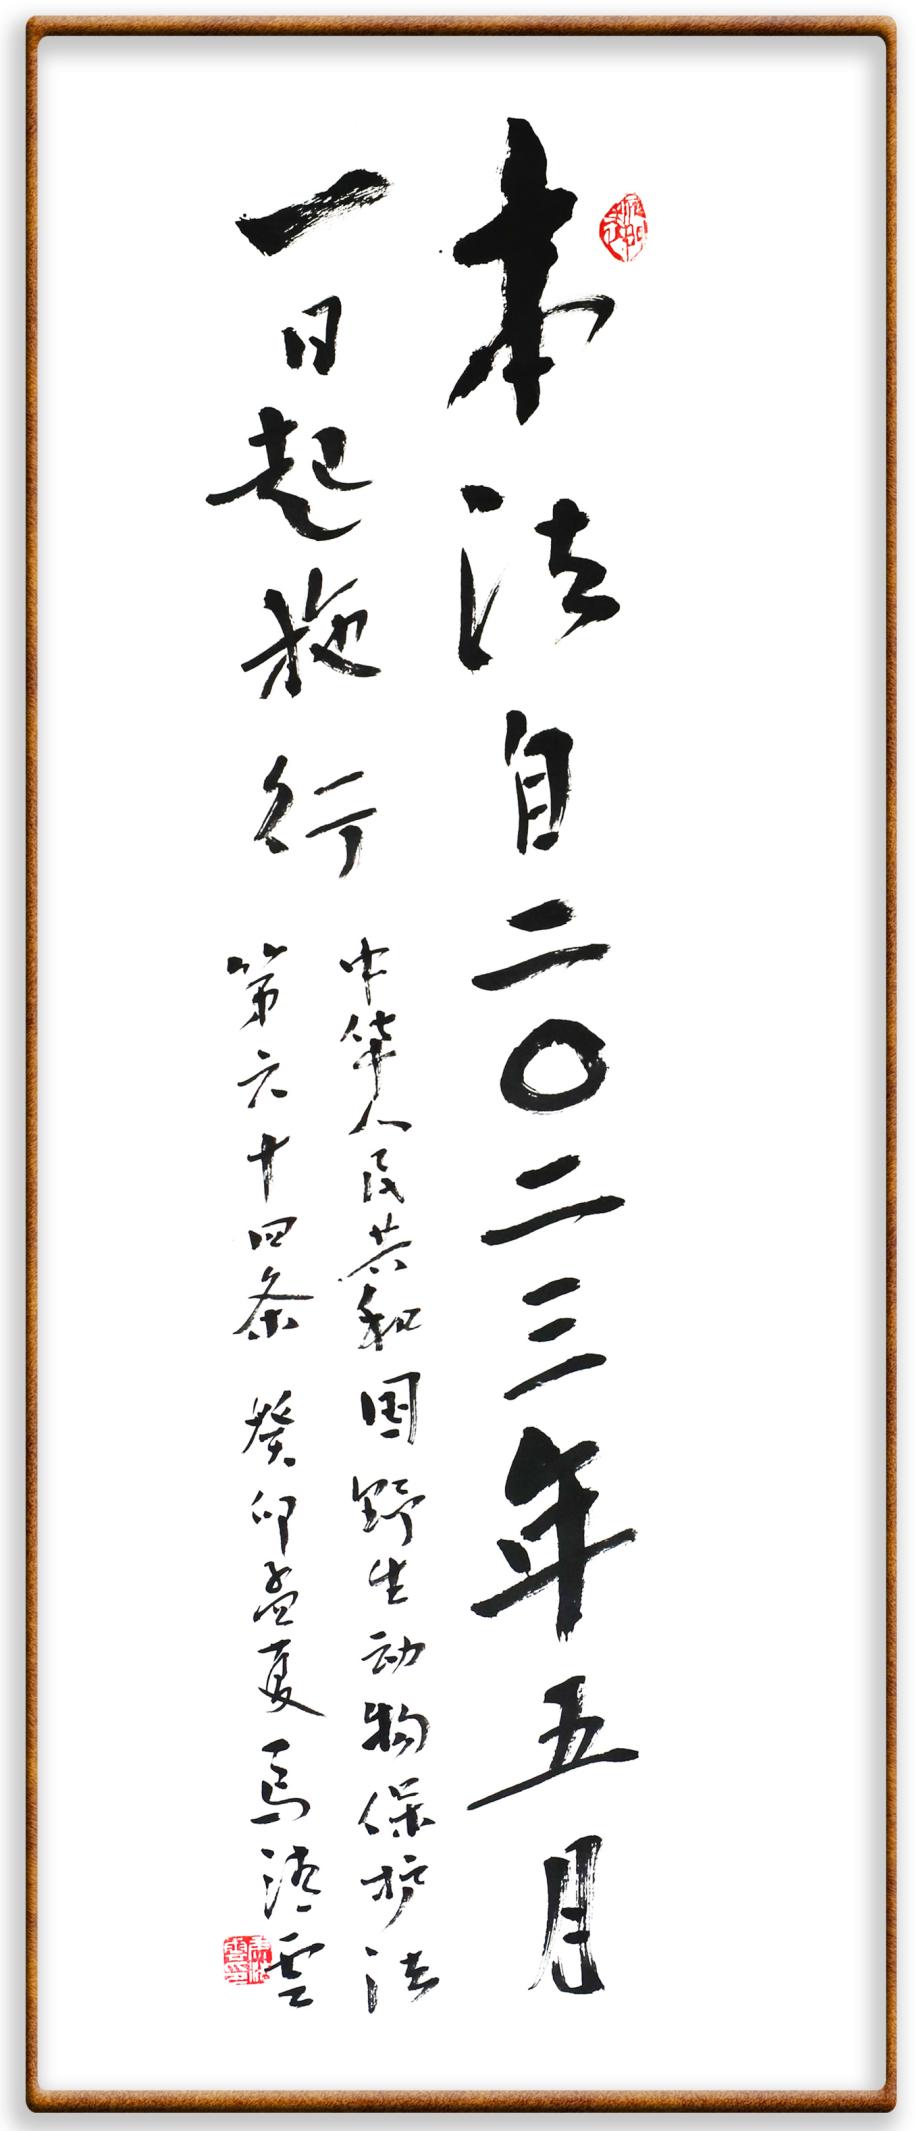 本法自二〇二三年五月
一日起施行
中华人民共和国野生动物保护法
第六十四条 癸卯孟夏马清云